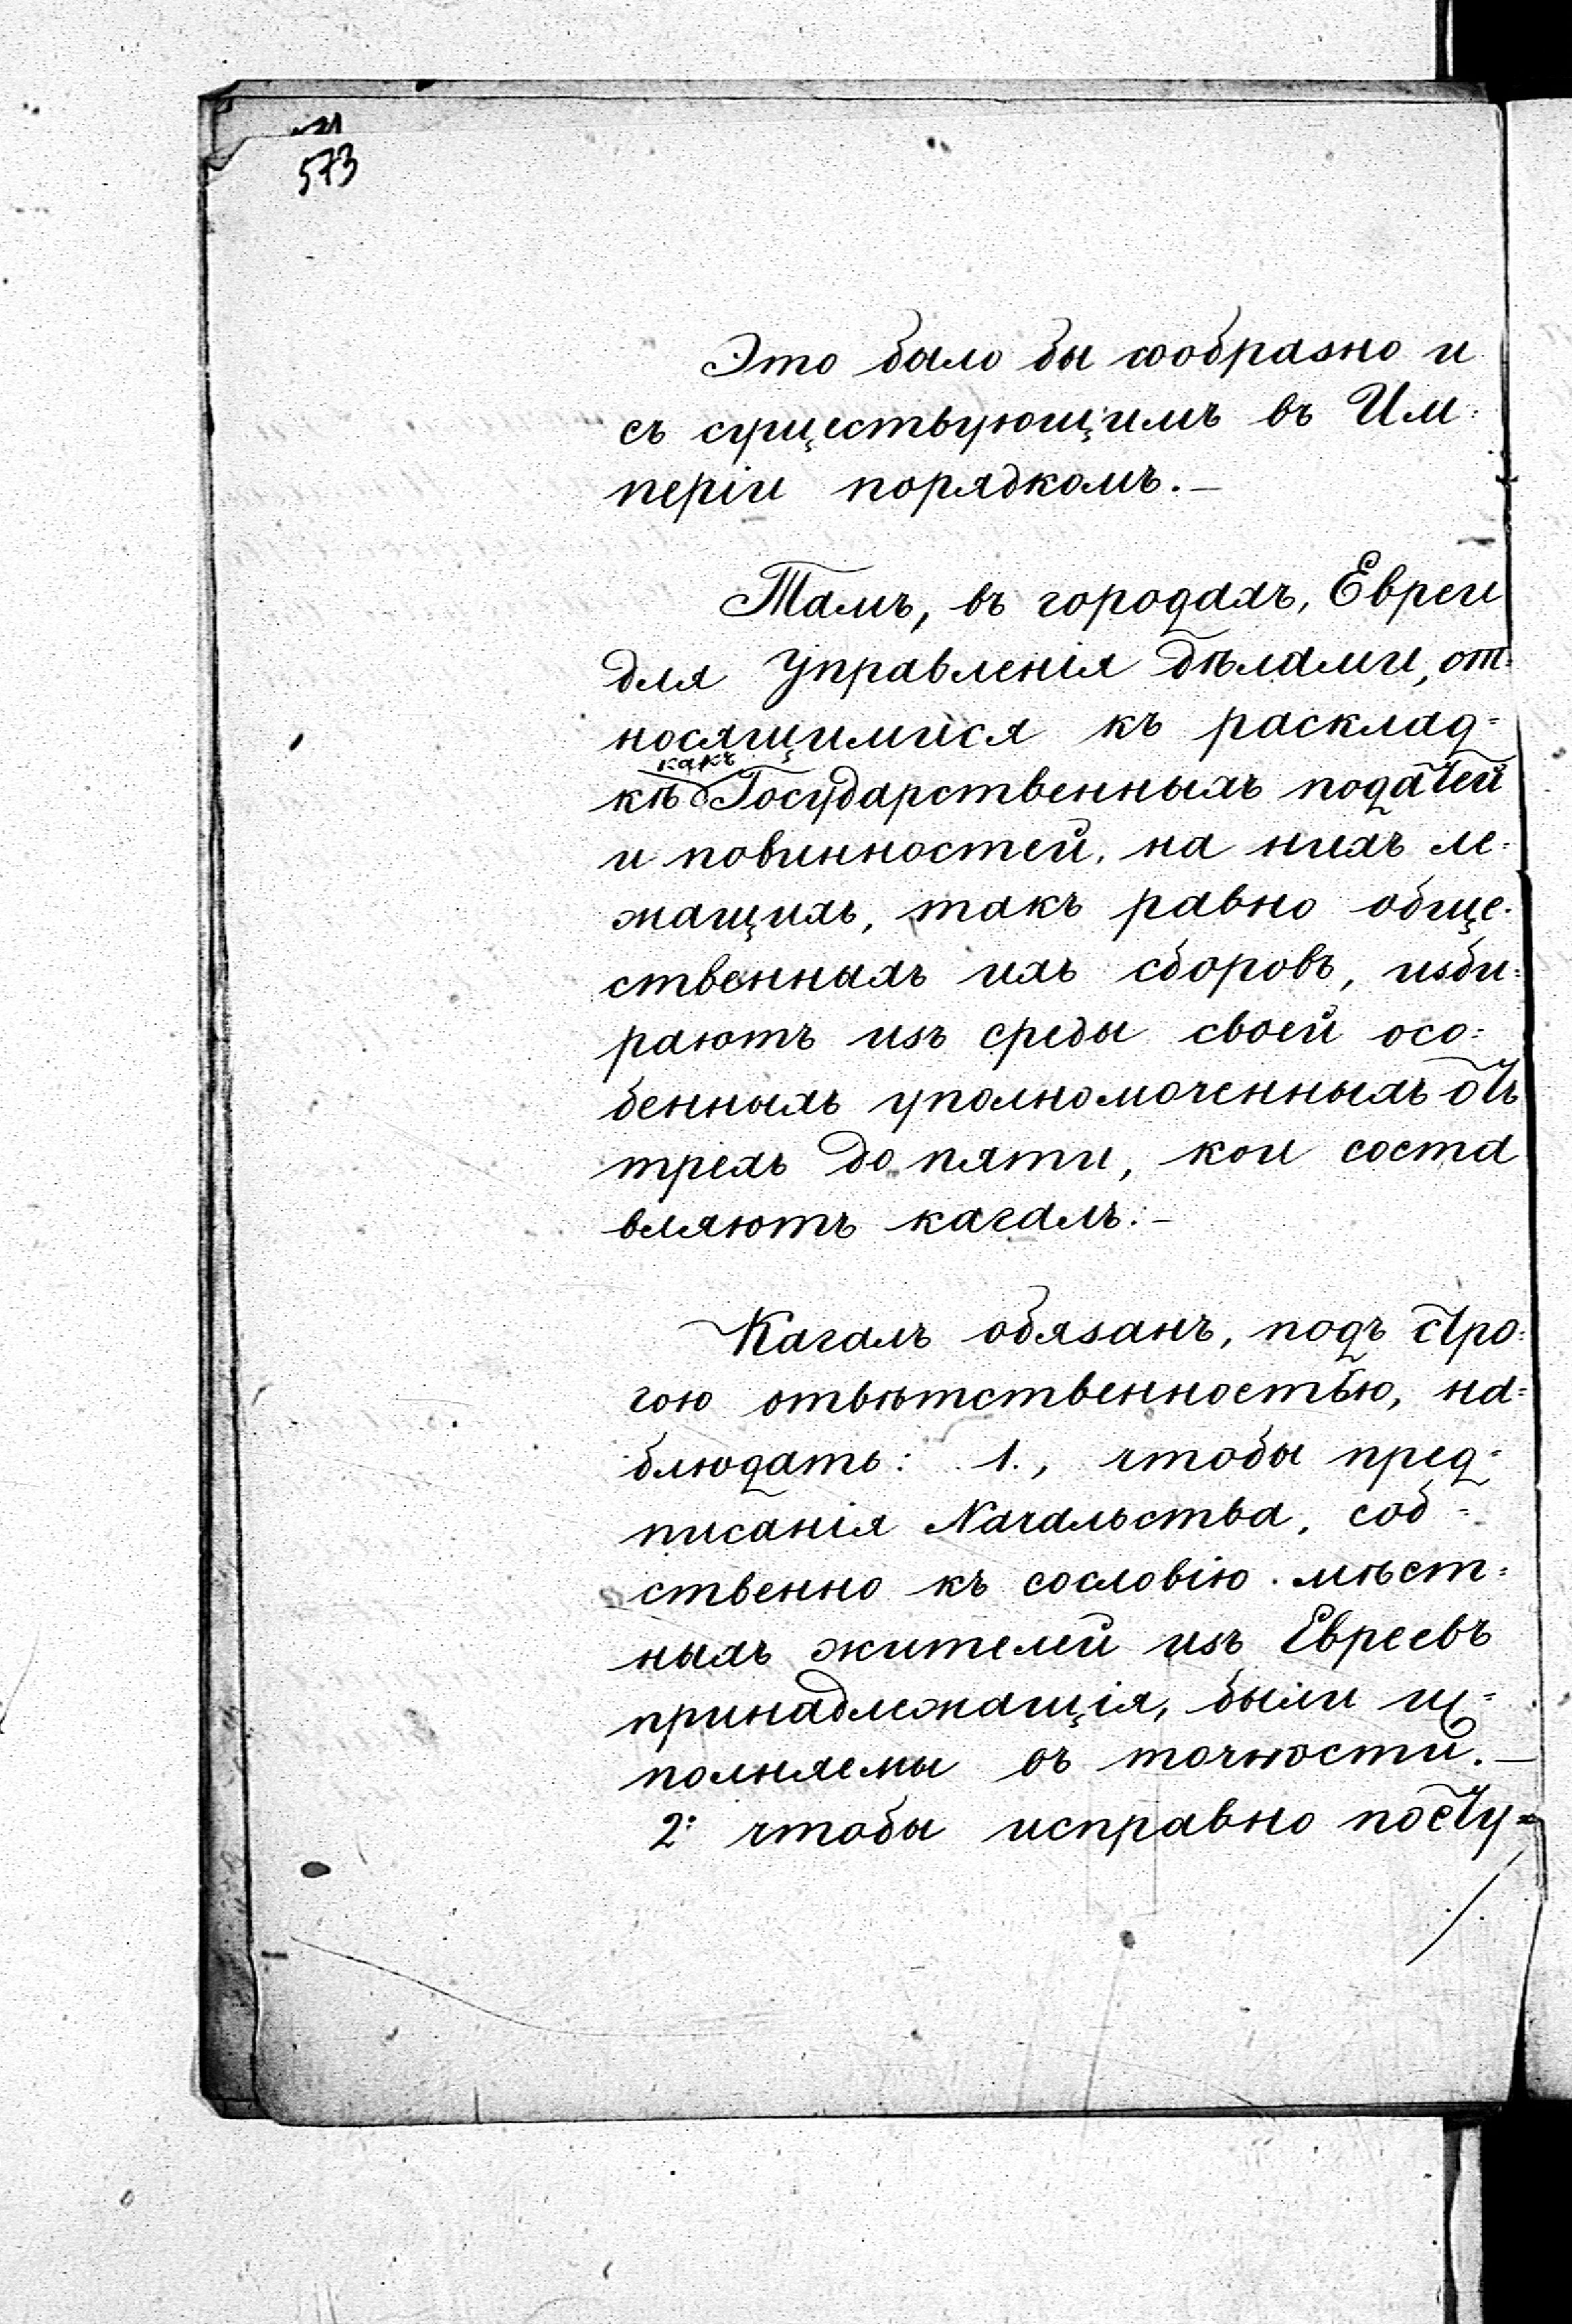 573
Это было бы сообразно и
съ существующимъ въ Им=
періи порядкомъ.—
Тамъ, въ городахъ, Евреи
для Управленія дѣлами, от=
носящимися къ расклад=
какъ
кѣ Государственныхъ податей
и повинностей, на нихъ ле=
жащихъ, такъ равно обще=
ственныхъ ихъ сборовъ, изби=
раютъ изъ среды своей осо=
бенныхъ уполномоченныхъ отъ
трехъ до пяти, кои соста
вляютъ кагалъ.—
Кагалъ обязанъ, подъ стро=
гою отвѣтственностью, на=
блюдать: 1., чтобы пред=
писанія Начальства, соб=
ственно къ сословію мѣст=
ныхъ жителей изъ Евреевъ
принадлежащія, были ис=
полняемы въ точности.—
2: чтобы исправно посту=